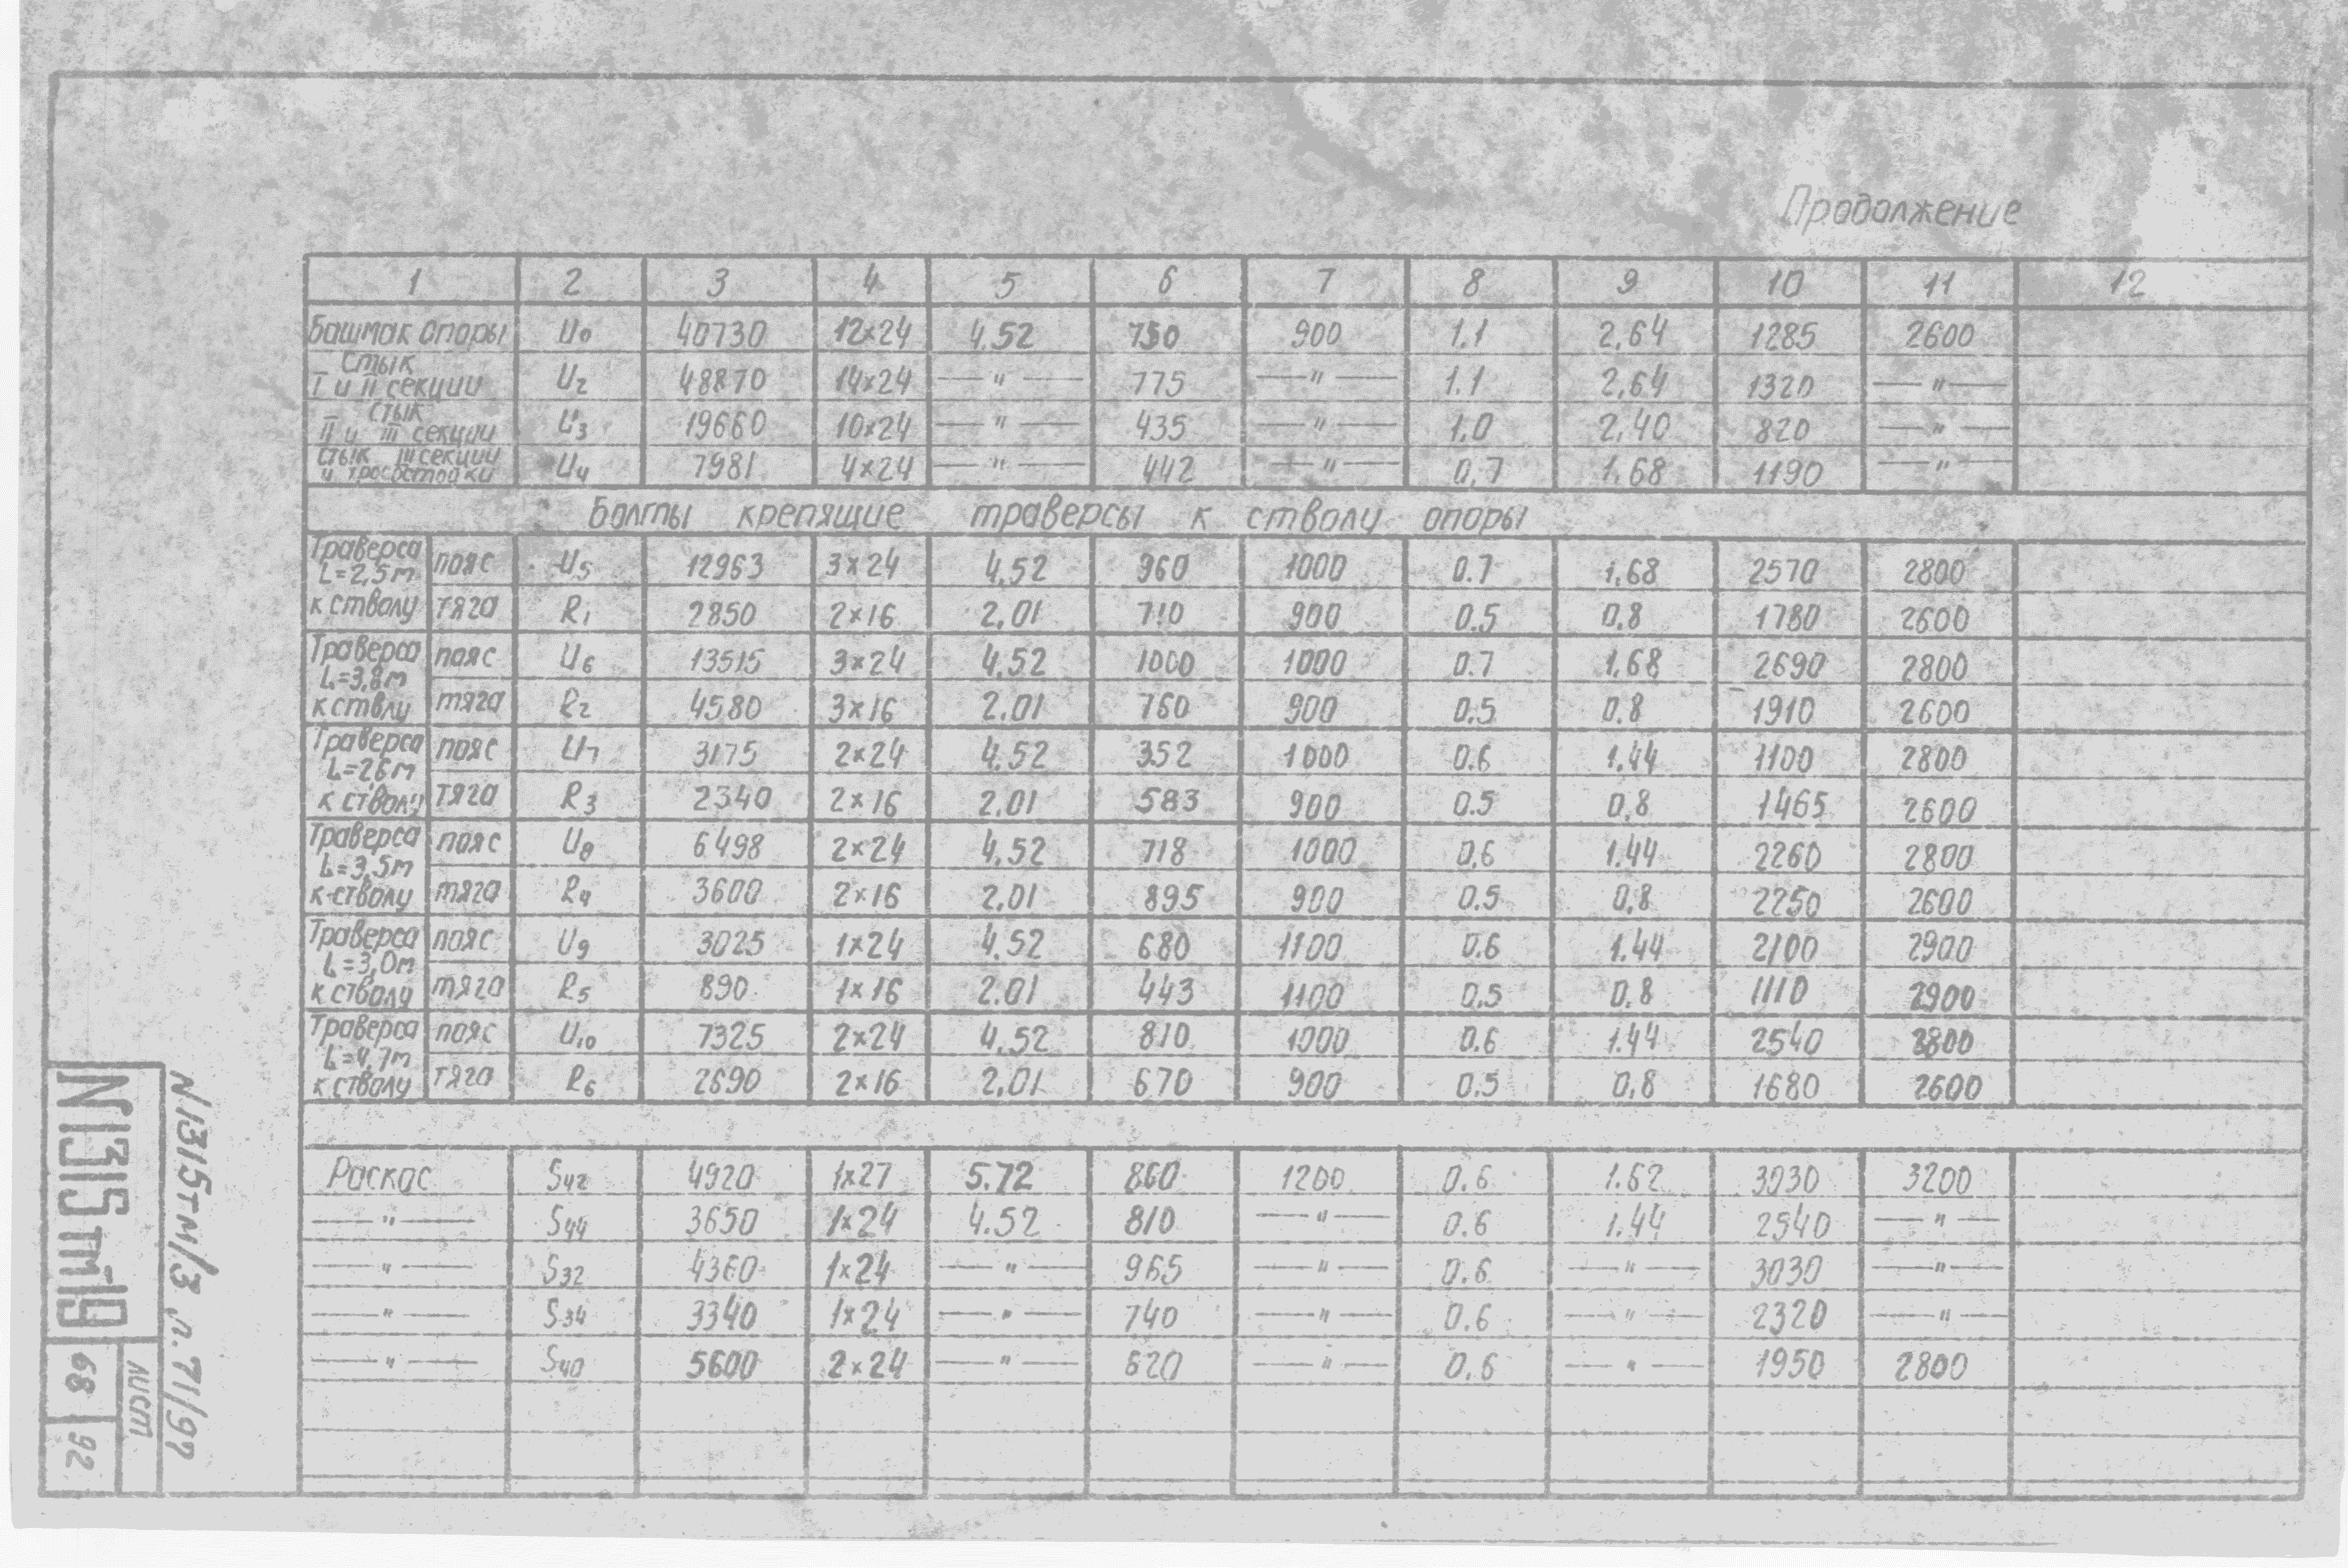 Продолжение
1 2 3 4 5 6 7 8 9 10 11 12
Башмак опоры U0 40730 12×24 4.52 750 900 1.1 2,64 1285 2600
Стык
I и II секции U2 48870 14×24 —"— 775 —"— 1.1 2,64 1320 —"—
стык
II и III секции U3 19660 10×24 —"— 435 —"— 1.0 2,40 820 —"—
Стык III секции
и тросостойки U4 7981 4×24 —"— 442 —"— 0,7 1.68 1190 —"—
Болты крепящие траверсы к стволу опоры
Траверса
L=2,5м пояс U5 12963 3×24 4.52 960 1000 0.7 1,68 2570 2800
к стволу тяга R1 2850 2×16 2,01 710 900 0.5 0,8 1780 2600
Траверса пояс U6 13515 3×24 4.52 1000 1000 0.7 1,68 2690 2800
L=3,8м
к ствлу тяга R2 4580 3×16 2.01 760 900 0.5 0.8 1910 2600
Траверса пояс U7 3175 2×24 4.52 352 1000 0.6 1.44 1100 2800
L=2,6м
к стволу тяга R3 2340 2×16 2.01 583 900 0.5 0,8 1465 2600
Траверса пояс U8 6498 2×24 4.52 718 1000 0,6 1.44 2260 2800
L=3,5м
к стволу тяга R4 3600 2×16 2.01 895 900 0.5 0,8 2250 2600
Траверса пояс U9 3025 1×24 4.52 680 1100 0.6 1.44 2100 2900
L=3,0м
к стволу тяга R5 890 1×16 2.01 443 1100 0.5 0.8 1110 2900
Траверса пояс U10 7325 2×24 4.52 810 1000 0.6 1.44 2540 2800
L=4,7м
к стволу тяга R6 2690 2×16 2,01 670 900 0.5 0,8 1680 2600
Раскос S42 4920 1×27 5.72 860 1200 0.6 1.62 3030 3200
—"— S44 3650 1×24 4.52 810 —"— 0.6 1.44 2540 —"—
—"— S32 4360 1×24 —"— 965 —"— 0.6 —"— 3030 —"—
—"— S34 3340 1×24 —"— 740 —"— 0.6 —"— 2320 —"—
—"— S40 5600 2×24 —"— 620 —"— 0,6 —"— 1950 2800
N1315тм/3 л.71/97
лист
68 92